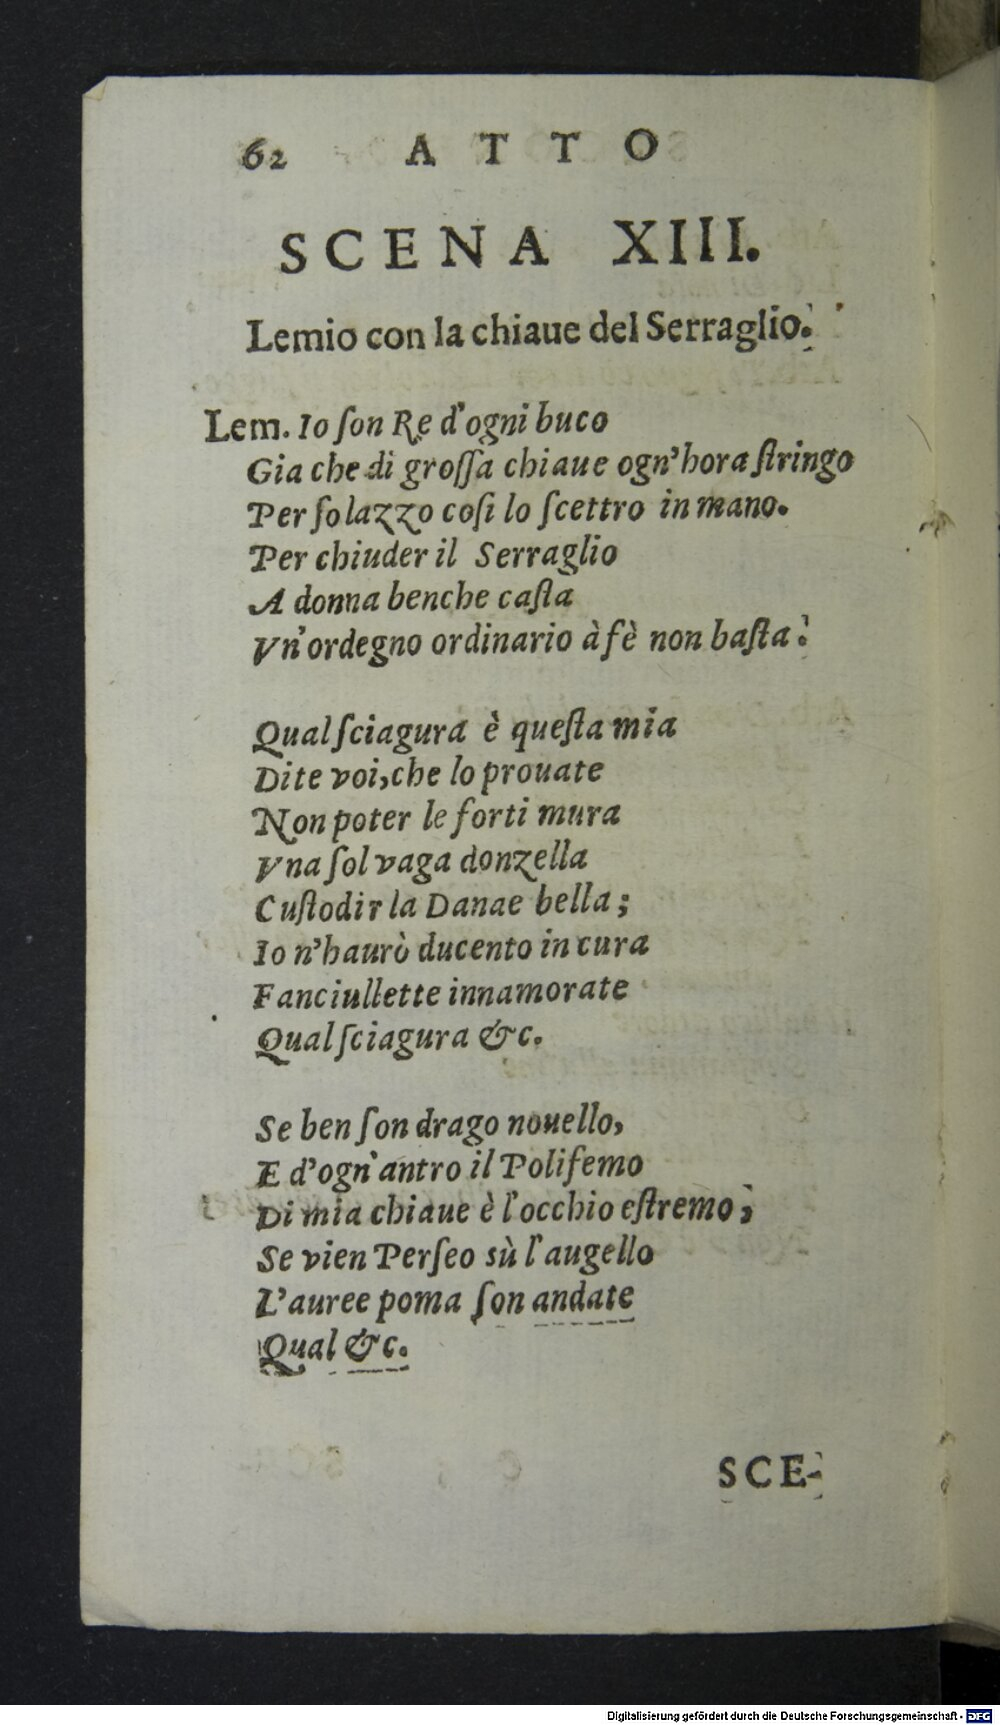 62 ATTO
SCENA XIII.
Lemio con la chiaue del Serraglio.
Lem. Io ſon Re d'ogni buco
Gia che di groſſa chiaue ogn'hora ſtringo
Per ſolazzo coſi lo ſcettro in mano.
Per chiuder il Serraglio
A donna benche caſta
Vn'ordegno ordinario à fè non baſta.
Qual ſciagura è queſta mia
Dite voi, che lo prouate
Non poter le forti mura
Vna ſol vaga donzella
Cuſtodir la Danae bella;
Io n'haurò ducento in cura
Fanciullette innamorate
Qual ſciagura &c.
Se ben ſon drago nouello,
E d'ogn'antro il Polifemo
Di mia chiaue è l'occhio eſtremo;
Se vien Perſeo sù l'augello
L'auree poma ſon andate
Qual &c.
SCE-
Digitalisierung gefördert durch die Deutsche Forschungsgemeinschaft - DFG